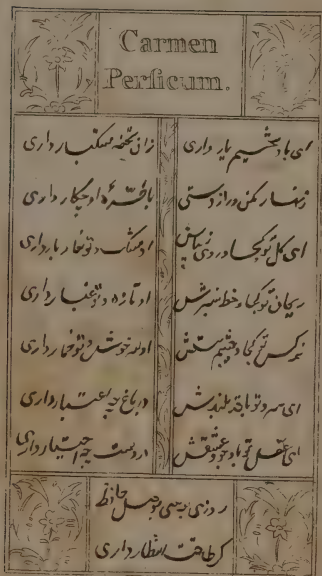 Carmen
Persicum.
ای باد نسیم یار داری زان نفحه مشکبار داری
زنهار مکن دراز دستی با طره او چکار داری
ای کل تو کجا و روی زیباش او مشک و تو خار بار داری
ریحان تو کجا و خط سبزش او تازه و تو غبار داری
نرکس تو کجا و چشم مستش او سرخوش و تو خمار داری
ای سرو تو با قد بلندش در باغ چه اعتبار داری
ای عقل تو با وجود عشقش در دست چه اختیار داری
روزی برسی بوصل حافظ
کر طاقت انتظار داری